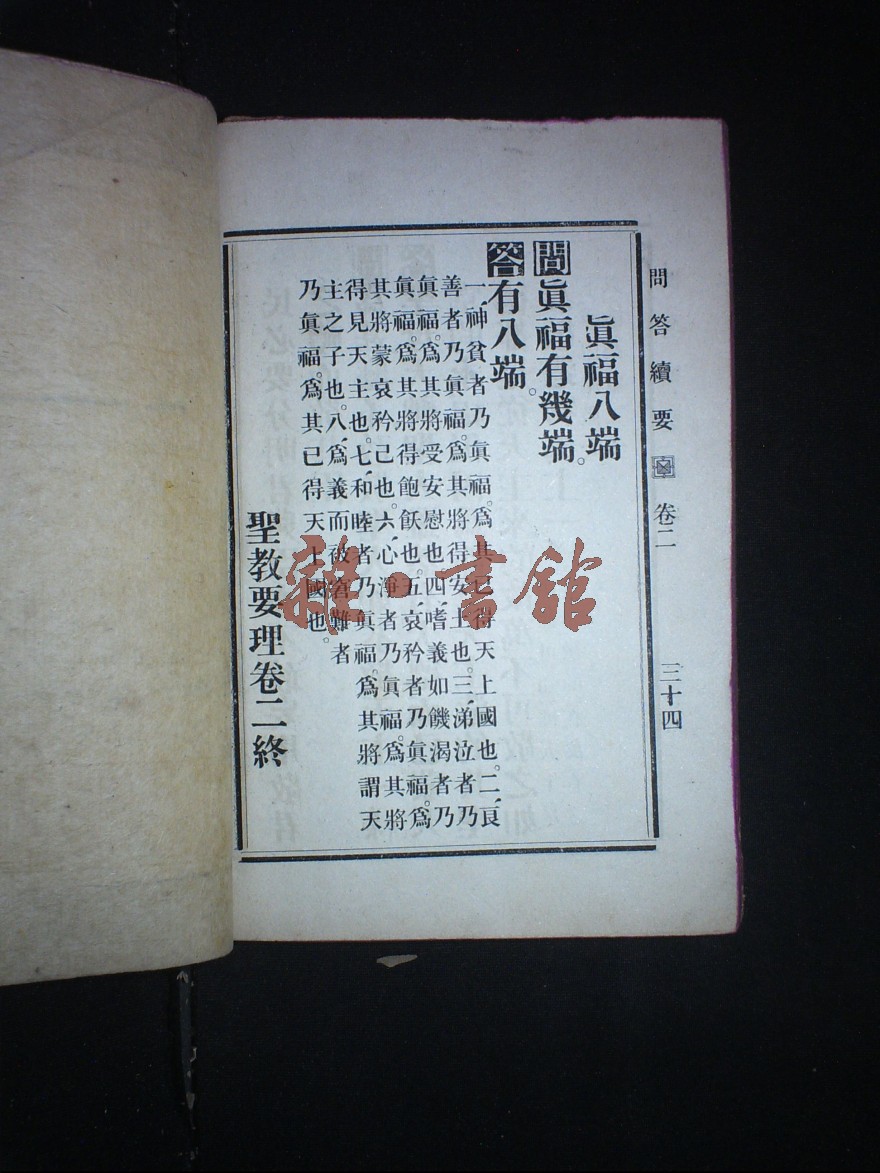 問答續要 卷二 三十四
眞福八端
問眞福有幾端。
答有八端。
一、神貧者乃眞福。爲其已得天上國也。二、良
善者乃眞福。爲其將得安土也。三、涕泣者乃
眞福。爲其將受安慰也。四、嗜義如饑渴者乃
眞福。爲其將得飽飫也。五、哀矜者乃眞福。爲
其將蒙哀矜己也。六、心淨者乃眞福。爲其將
得見天主也。七、和睦者乃眞福。爲其將謂天
主之子也。八、爲義而被窘難者
乃眞福。爲其已得天上國也。
聖教要理卷二終
雜·書館